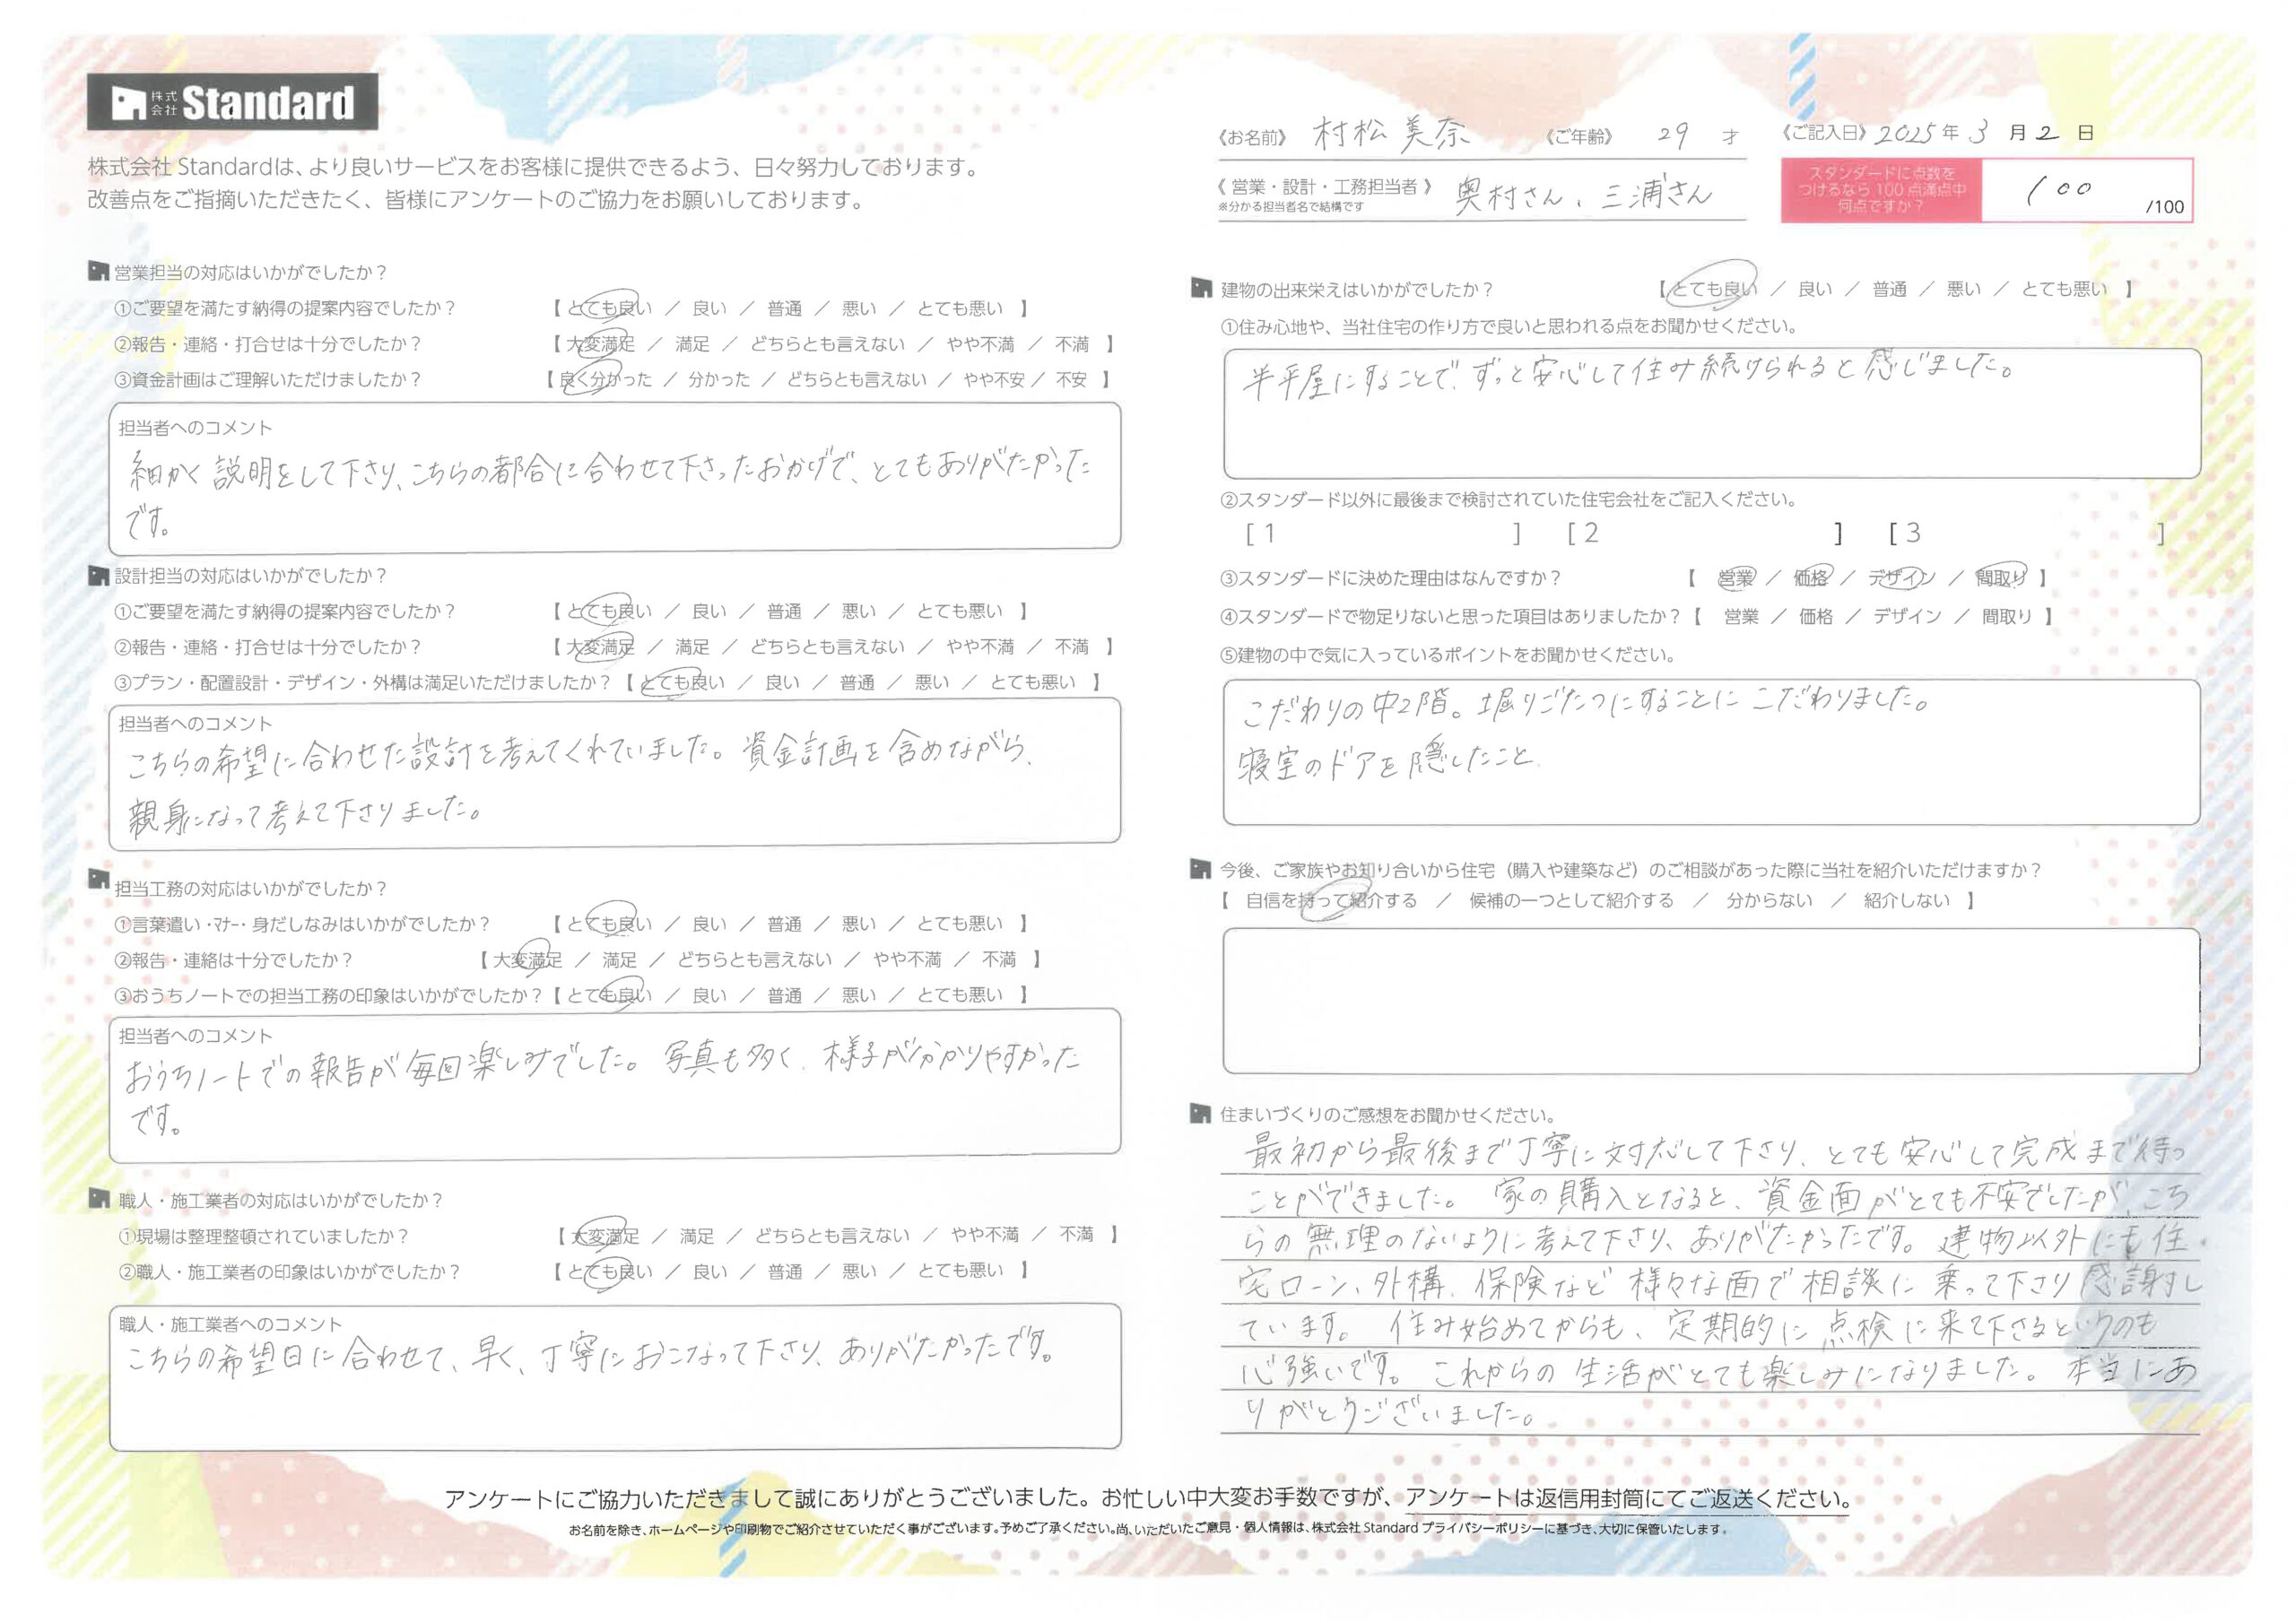 株式会社 Standard
株式会社 Standardは、より良いサービスをお客様に提供できるよう、日々努力しております。
改善点をご指摘いただきたく、皆様にアンケートのご協力をお願いしております。
《お名前》 村松 美奈 《ご年齢》 29 才 《ご記入日》 2025 年 3 月 2 日
《 営業・設計・工務担当者 》 奥村さん、三浦さん
※分かる担当者名で結構です
スタンダードに点数を
つけるなら 100 点満点中
何点ですか？
100 /100
営業担当の対応はいかがでしたか？
①ご要望を満たす納得の提案内容でしたか？ 【 とても良い ／ 良い ／ 普通 ／ 悪い ／ とても悪い 】
②報告・連絡・打合せは十分でしたか？ 【 大変満足 ／ 満足 ／ どちらとも言えない ／ やや不満 ／ 不満 】
③資金計画はご理解いただけましたか？ 【 良く分かった ／ 分かった ／ どちらとも言えない ／ やや不安 ／ 不安 】
担当者へのコメント
細かく説明をして下さり、こちらの都合に合わせて下さったおかげで、とてもありがたかった
です。
設計担当の対応はいかがでしたか？
①ご要望を満たす納得の提案内容でしたか？ 【 とても良い ／ 良い ／ 普通 ／ 悪い ／ とても悪い 】
②報告・連絡・打合せは十分でしたか？ 【 大変満足 ／ 満足 ／ どちらとも言えない ／ やや不満 ／ 不満 】
③プラン・配置設計・デザイン・外構は満足いただけましたか？【 とても良い ／ 良い ／ 普通 ／ 悪い ／ とても悪い 】
担当者へのコメント
こちらの希望に合わせた設計を考えてくれていました。資金計画を含めながら、
親身になって考えて下さりました。
担当工務の対応はいかがでしたか？
①言葉遣い・マナー・身だしなみはいかがでしたか？ 【 とても良い ／ 良い ／ 普通 ／ 悪い ／ とても悪い 】
②報告・連絡は十分でしたか？ 【 大変満足 ／ 満足 ／ どちらとも言えない ／ やや不満 ／ 不満 】
③おうちノートでの担当工務の印象はいかがでしたか？【 とても良い ／ 良い ／ 普通 ／ 悪い ／ とても悪い 】
担当者へのコメント
おうちノートでの報告が毎回楽しみでした。写真も多く、様子が分かりやすかった
です。
職人・施工業者の対応はいかがでしたか？
①現場は整理整頓されていましたか？ 【 大変満足 ／ 満足 ／ どちらとも言えない ／ やや不満 ／ 不満 】
②職人・施工業者の印象はいかがでしたか？ 【 とても良い ／ 良い ／ 普通 ／ 悪い ／ とても悪い 】
職人・施工業者へのコメント
こちらの希望日に合わせて、早く、丁寧におこなって下さり、ありがたかったです。
建物の出来栄えはいかがでしたか？ 【 とても良い ／ 良い ／ 普通 ／ 悪い ／ とても悪い 】
①住み心地や、当社住宅の作り方で良いと思われる点をお聞かせください。
半平屋にすることで、ずっと安心して住み続けられると感じました。
②スタンダード以外に最後まで検討されていた住宅会社をご記入ください。
[ 1 ] [ 2 ] [ 3 ]
③スタンダードに決めた理由はなんですか？ 【 営業 ／ 価格 ／ デザイン ／ 間取り 】
④スタンダードで物足りないと思った項目はありましたか？【 営業 ／ 価格 ／ デザイン ／ 間取り 】
⑤建物の中で気に入っているポイントをお聞かせください。
こだわりの中2階。堀りごたつにすることにこだわりました。
寝室のドアを隠したこと.
今後、ご家族やお知り合いから住宅（購入や建築など）のご相談があった際に当社を紹介いただけますか？
【 自信を持って紹介する ／ 候補の一つとして紹介する ／ 分からない ／ 紹介しない 】
住まいづくりのご感想をお聞かせください。
最初から最後まで丁寧に対応して下さり、とても安心して完成まで待つ
ことができました。 家の購入となると、資金面がとても不安でしたが、こち
らの無理のないように考えて下さり、ありがたかったです。建物以外にも住
宅ローン、外構、保険など様々な面で相談に乗って下さり感謝し
ています。 住み始めてからも、定期的に点検に来て下さるというのも
心強いです。これからの生活がとても楽しみになりました。本当にあ
りがとうございました。
アンケートにご協力いただきまして誠にありがとうございました。お忙しい中大変お手数ですが、アンケートは返信用封筒にてご返送ください。
お名前を除き、ホームページや印刷物でご紹介させていただく事がございます。予めご了承ください。尚、いただいたご意見・個人情報は、株式会社 Standard プライバシーポリシーに基づき、大切に保管いたします。